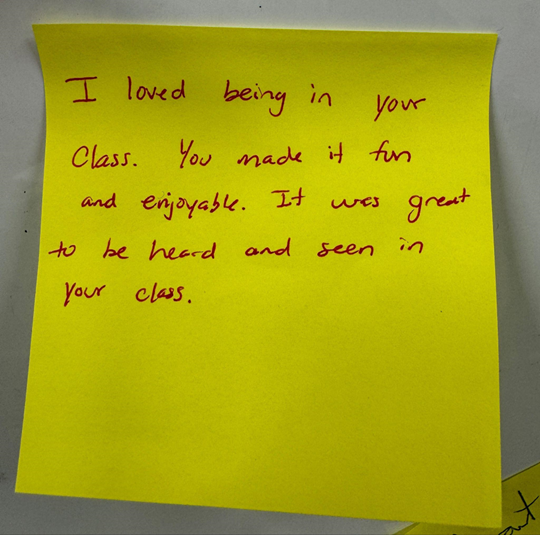 I loved being in your
Class. You made it fun
and enjoyable. It was great
to be heard and seen in
your class.